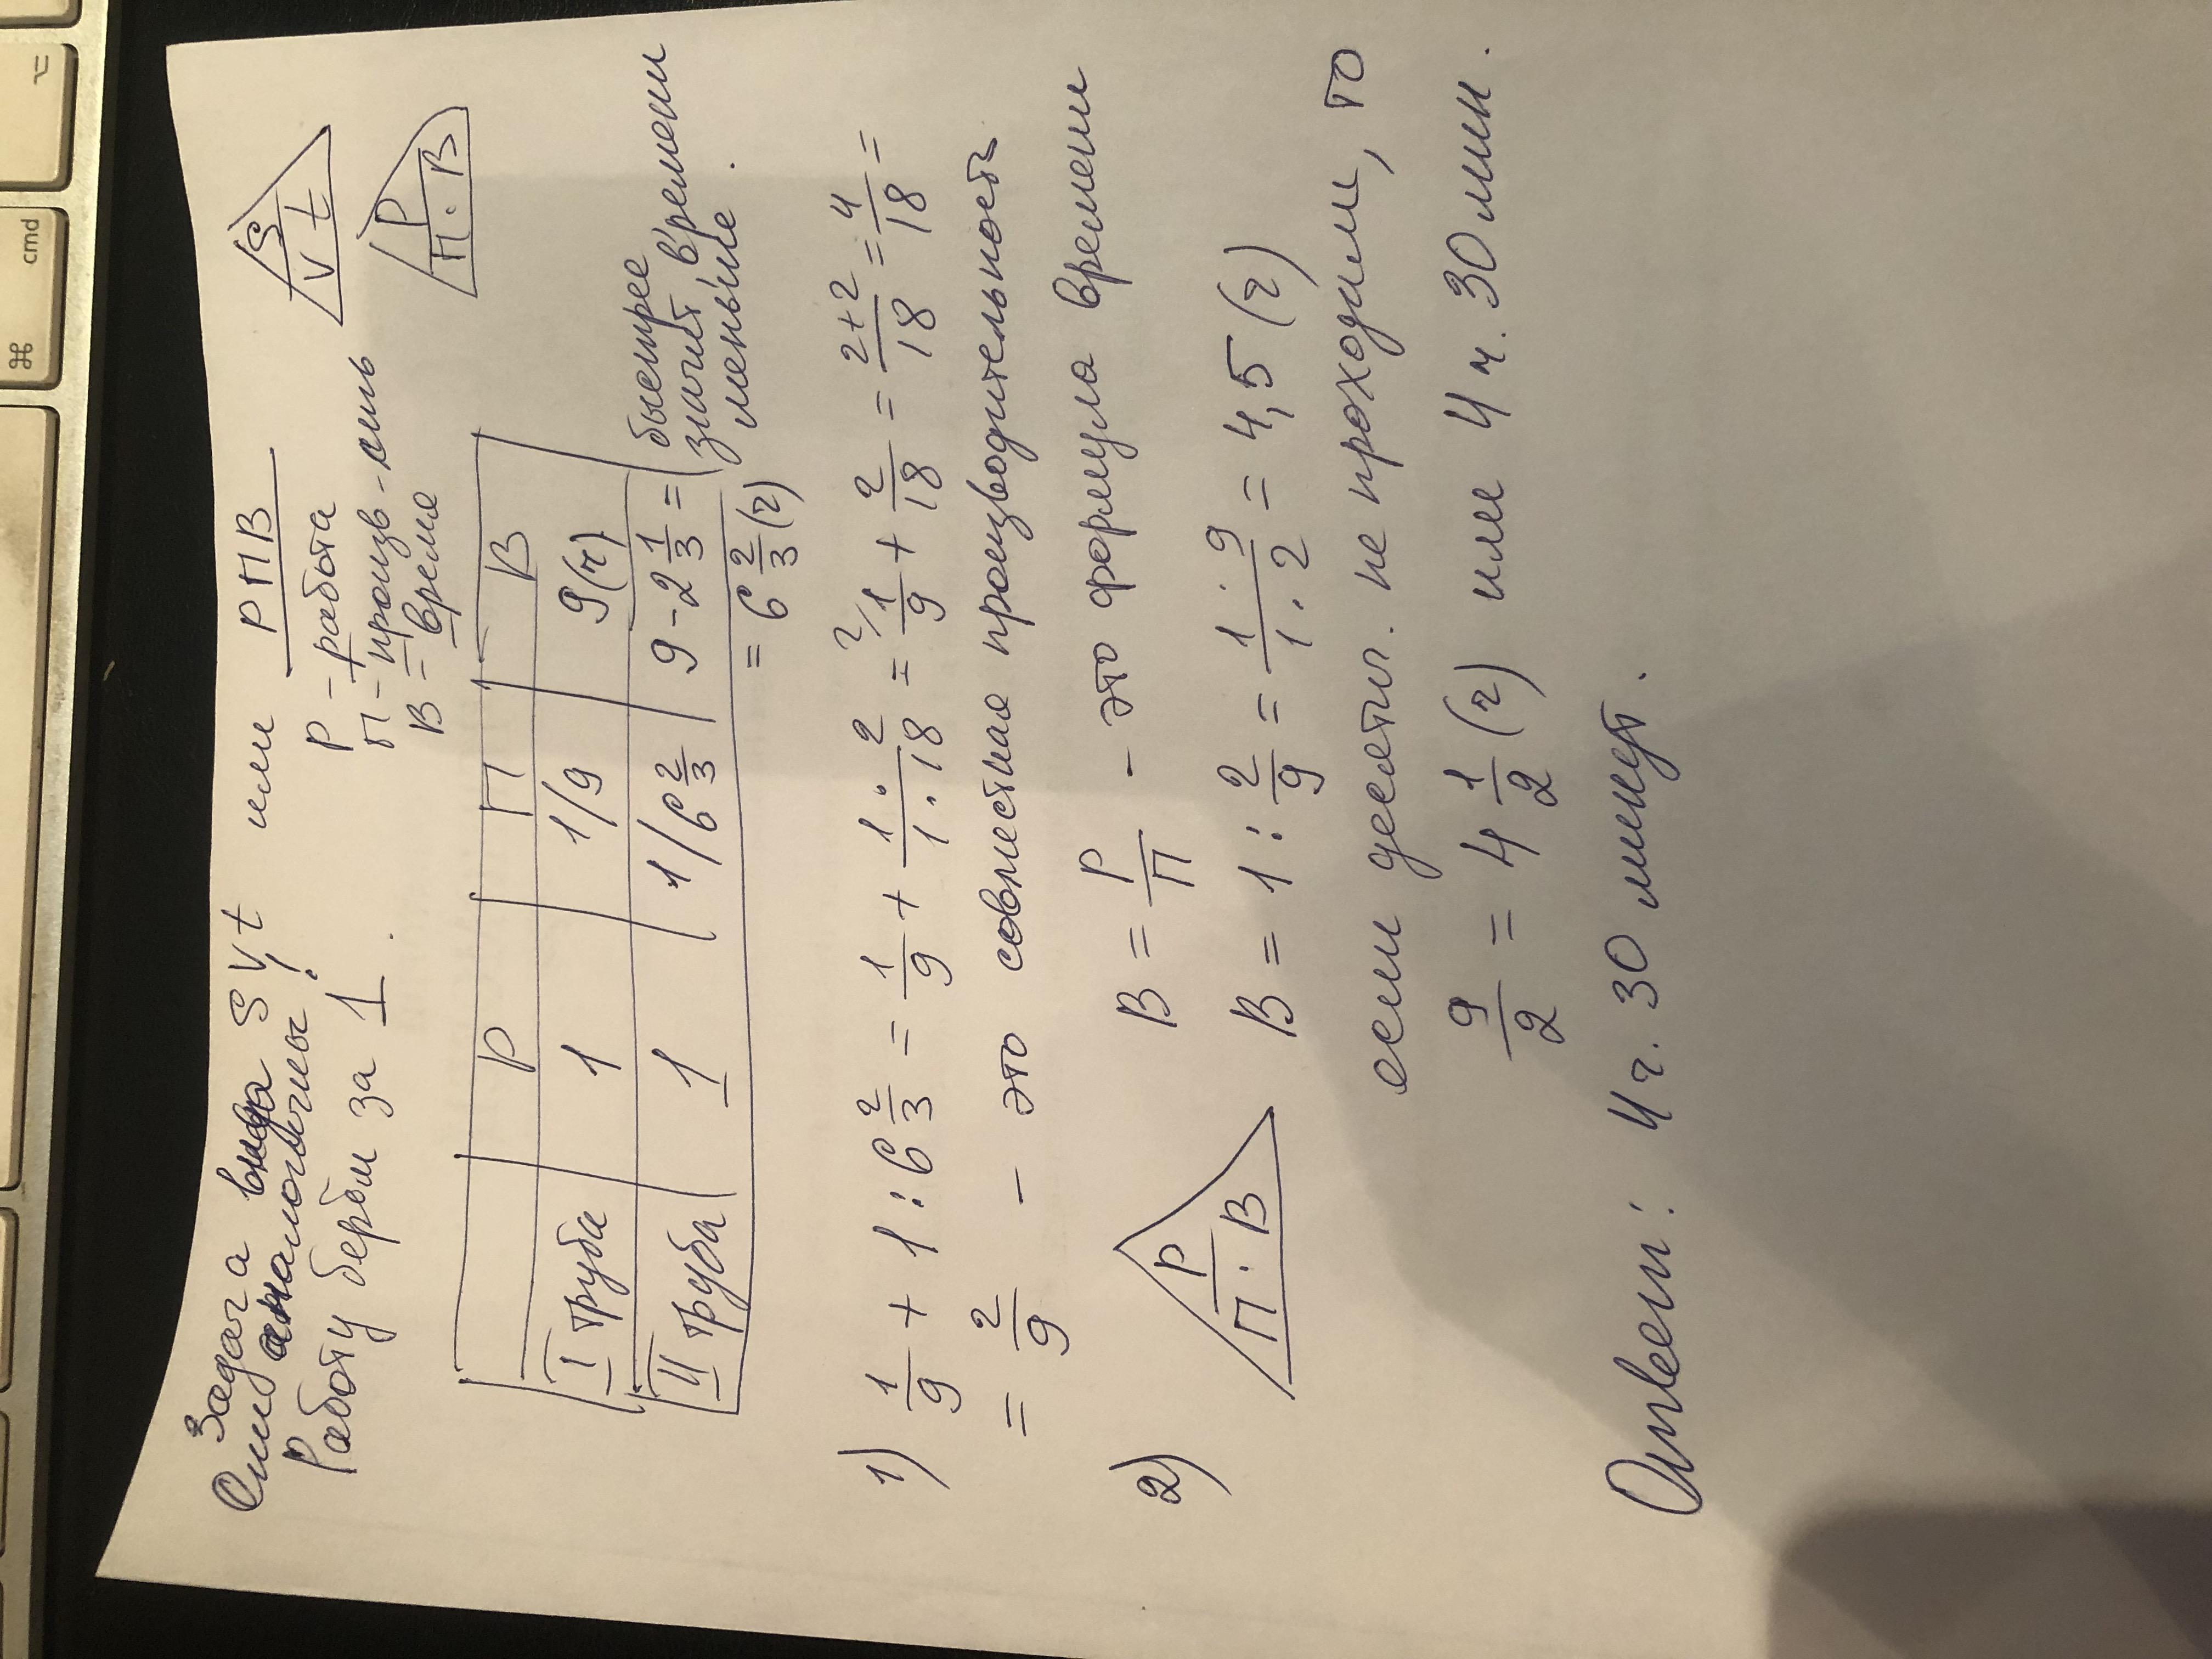 Задача вида SVt или РПВ
Они аналогичны!
Работу берём за 1.
Р - работа
П - произв-ость
В = время
S
V t
Р
П · В
Р П В
I труба 1 1/9 9(ч)
II труба 1 1/6 2/3 9 - 2 1/3 =
= 6 2/3 (ч)
быстрее
значит, времени
меньше.
1) 1/9 + 1 : 6 2/3 = 1/9 + 1 · 2/1 · 18 = 1/9 + 2/18 = 2+2/18 = 4/18 =
= 2/9 - это совместная производительность
2) Р
П · В
В = Р/П - это формула времени
В = 1 : 2/9 = 1 · 9/1 · 2 = 4,5 (ч)
если десятич. не проходили, то
9/2 = 4 1/2 (ч) или 4 ч. 30 мин.
Ответ: 4 ч. 30 минут.
⌘
cmd
⌥